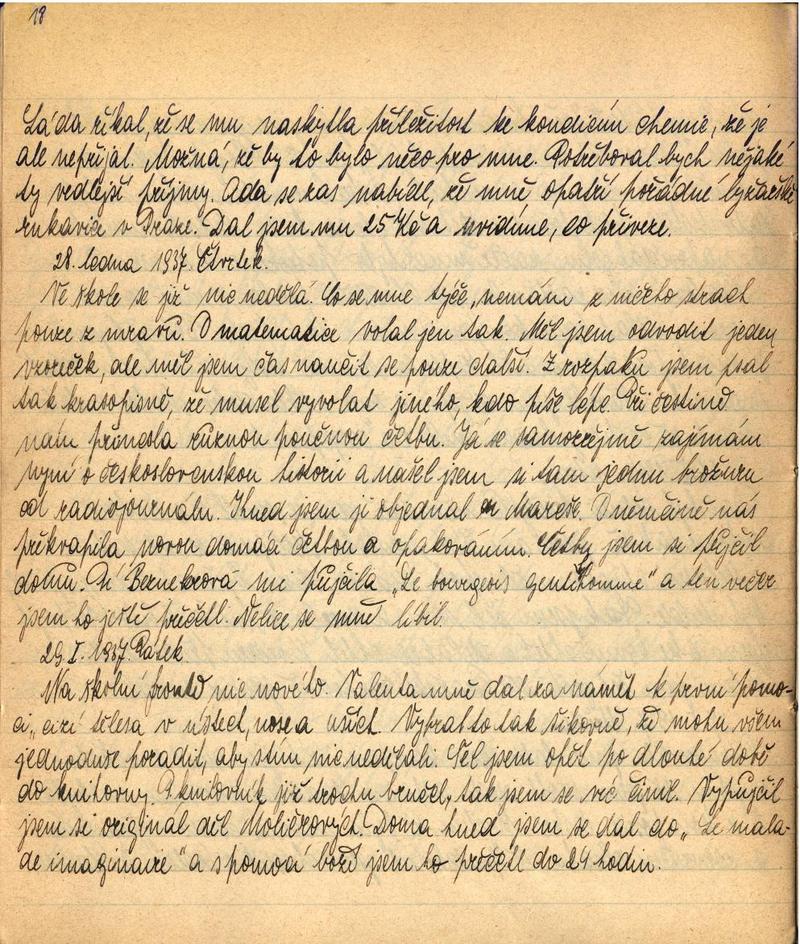 18
Láďa říkal, že se mu naskytla příležitost ke kondicím chemie, že je
ale nepřijal. Možná, že by to bylo něco pro mne. Potřeboval bych nějaké
ty vedlejší příjmy. Ada se zas nabídl, že mně opatří pořádné lyžařské
rukavice v Praze. Dal jsem mu 25 Kč a uvidíme, co přiveze.
28. ledna 1937. Čtvrtek.
Ve škole se již nic nedělá. Co se mne týče, nemám z ničeho strach
pouze z mravů. V matematice volal jen tak. Měl jsem odvodit jeden
vzoreček, ale měl jsem čas naučit se pouze další. Z rozpaku jsem psal
tak krasopisně, že musel vyvolat jiného, kdo píše lépe. Při češtině
nám přinesla různou poučnou četbu. Já se samozřejmě zajímám
nyní o československou historii a našel jsem si tam jednu brožuru
od radiojournálu. Ihned jsem ji objednal u Mareše. V němčině nás
překvapila novou domácí četbou a opakováním. Četby jsem si půjčil
domů. Fí Bernekrová mi půjčila „Le bourgeois gentilhomme" a ten večer
jsem ho ještě přečetl. Velice se mně líbil.
29. I. 1937. Pátek
Na školní frontě nic nového. Valenta mně dal za námět k první pomo-
ci „cizí tělesa v ústech, nose a uších. Vybral to tak šikovně, že mohu všem
jednoduše poradit, aby s tím nic nedělali. Šel jsem opět po dlouhé době
do knihovny. P. knihovník již trochu bručel, tak jsem se víc činil. Vypůjčil
jsem si originál děl Moliérových. Doma hned jsem se dal do „Le mala-
de imaginaire" a s pomocí boží jsem ho přečetl do 24 hodin.